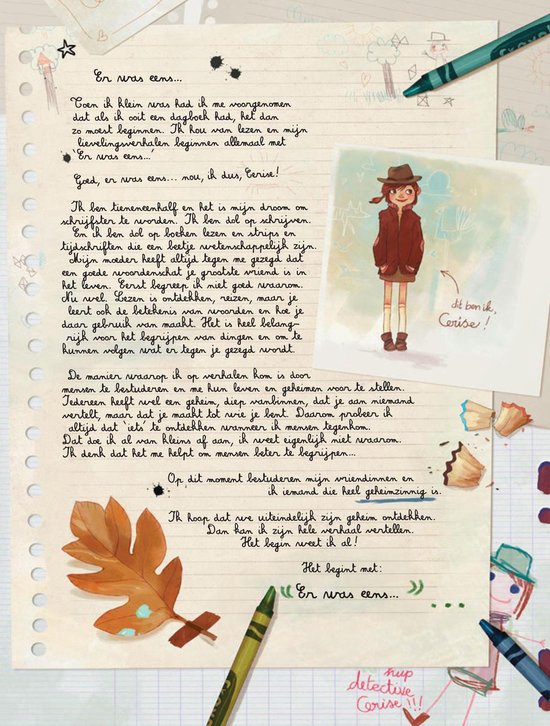 Er was eens...
Toen ik klein was had ik me voorgenomen
dat als ik ooit een dagboek had, het dan
zo moest beginnen. Ik hou van lezen en mijn
lievelingsverhalen beginnen allemaal met
'Er was eens.'
Goed, er was eens... nou, ik dus, Cerise!
Ik ben tieneneenhalf en het is mijn droom om
schrijfster te worden. Ik ben dol op schrijven.
En ik ben dol op boeken lezen en strips en
tijdschriften die een beetje wetenschappelijk zijn.
Mijn moeder heeft altijd tegen me gezegd dat
een goede woordenschat je grootste vriend is in
het leven. Eerst begreep ik niet goed waarom.
Nu wel. Lezen is ontdekken, reizen, maar je
leert ook de betekenis van woorden en hoe je
daar gebruik van maakt. Het is heel belang-
rijk voor het begrijpen van dingen en om te
kunnen volgen wat er tegen je gezegd wordt.
dit ben ik,
Cerise!
De manier waarop ik op verhalen kom is door
mensen te bestuderen en me hun leven en geheimen voor te stellen.
Iedereen heeft wel een geheim, diep vanbinnen, dat je aan niemand
vertelt, maar dat je maakt tot wie je bent. Daarom probeer ik
altijd dat 'iets' te ontdekken wanneer ik mensen tegenkom.
Dat doe ik al van kleins af aan, ik weet eigenlijk niet waarom.
Ik denk dat het me helpt om mensen beter te begrijpen...
Op dit moment bestuderen mijn vriendinnen en
ik iemand die heel geheimzinnig is.
Ik hoop dat we uiteindelijk zijn geheim ontdekken.
Dan kan ik zijn hele verhaal vertellen.
Het begin weet ik al!
Het begint met:
"Er was eens... "
...
hup
detective
Cerise!!!